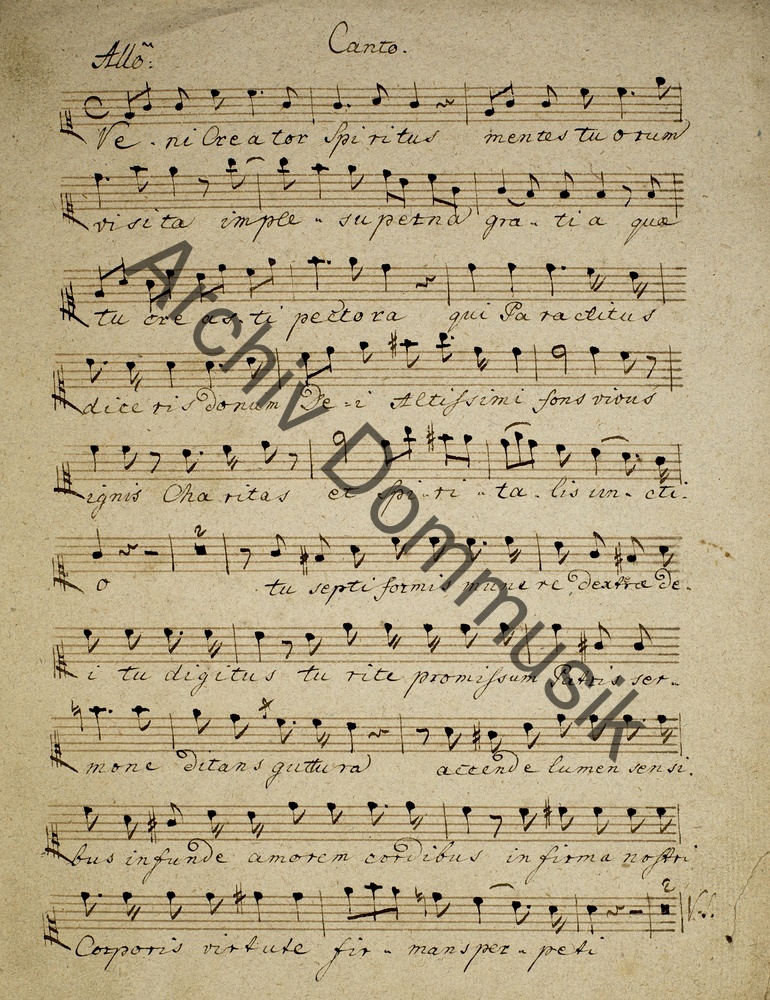 Canto.
Allo:
Ve - ni Creator Spiritus mentes tuorum
visita imple - superna gra - tia quæ
tu cre as - ti pectora qui Paraclitus
diceris donum De - i Altissimi fons vivus
ignis Charitas et Spi - ri - ta - lis un - cti -
2
o tu septiformis munere dextræ De -
i tu digitus tu rite promissum Patris ser -
mone ditans guttura accende lumen sensi -
bus infunde amorem cordibus infirma nostri
2
V.S.
Corporis virtute fir - mans per - peti
Archiv Dommusik